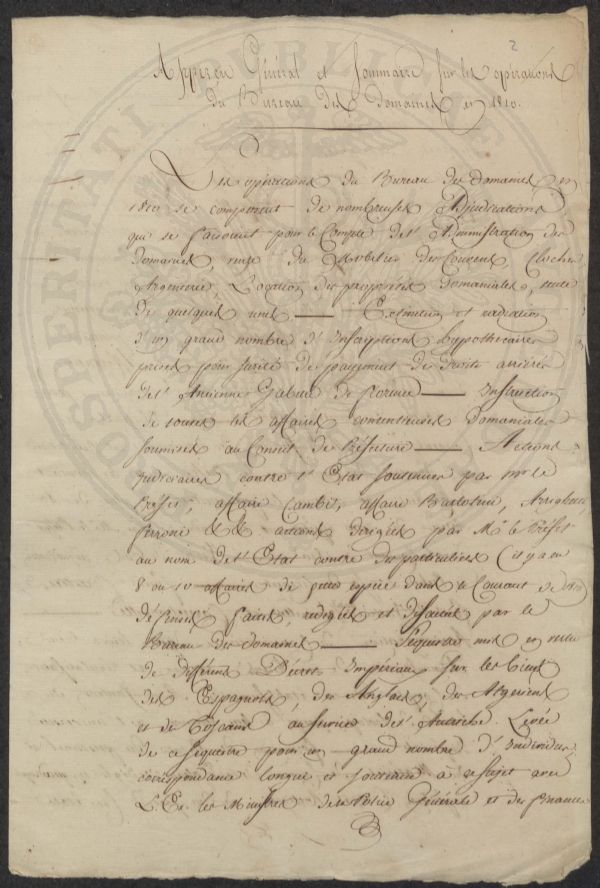 2
Apperçu Général et Sommaire sur les opérations
du Bureau des Domaines en 1810.
Les opérations du Bureau des Domaines en
1810 se composent de nombreuses Adjudications
qui se faisoient pour le Compte de l'Administration des
Domaines, vente du Mobilier des Couvens, Cloches
Argenterie, Location des propriétés Domaniales, vente
de quelques unes — Extinction et radiation
d'un grand nombre d'Inscriptions hypothécaires
prises pour sureté de payement des Droits arriérés
de l'Ancienne Gabelle de Florence — Instruction
de toutes les affaires contentieuses Domaniales
soumises au Conseil de Préfecture — Actions
judiciaires contre l'Etat soutenues par Mr le
Préfet, affaire Cambi, affaire Bartolini,
Perroni && actions dirigées par Mr le Préfet
au nom de l'Etat contre des particuliers (il y a eu
8 ou 10 affaires de cette espèce dans le Courant
faites, redigées et par le
Bureau des Domaines — Sequestre mis en vertu
de différens Décrets Impériaux sur les biens
des Espagnols, des Anglais, des Algeriens
et de Toscans au service de l'Autriche. Levée
de ce séquestre pour un grand nombre d'Individus,
correspondance longue et à ce sujet avec
L.L. Ex. les Ministres de la Police Générale et des finances
PROSPERITATI PUBLICAE